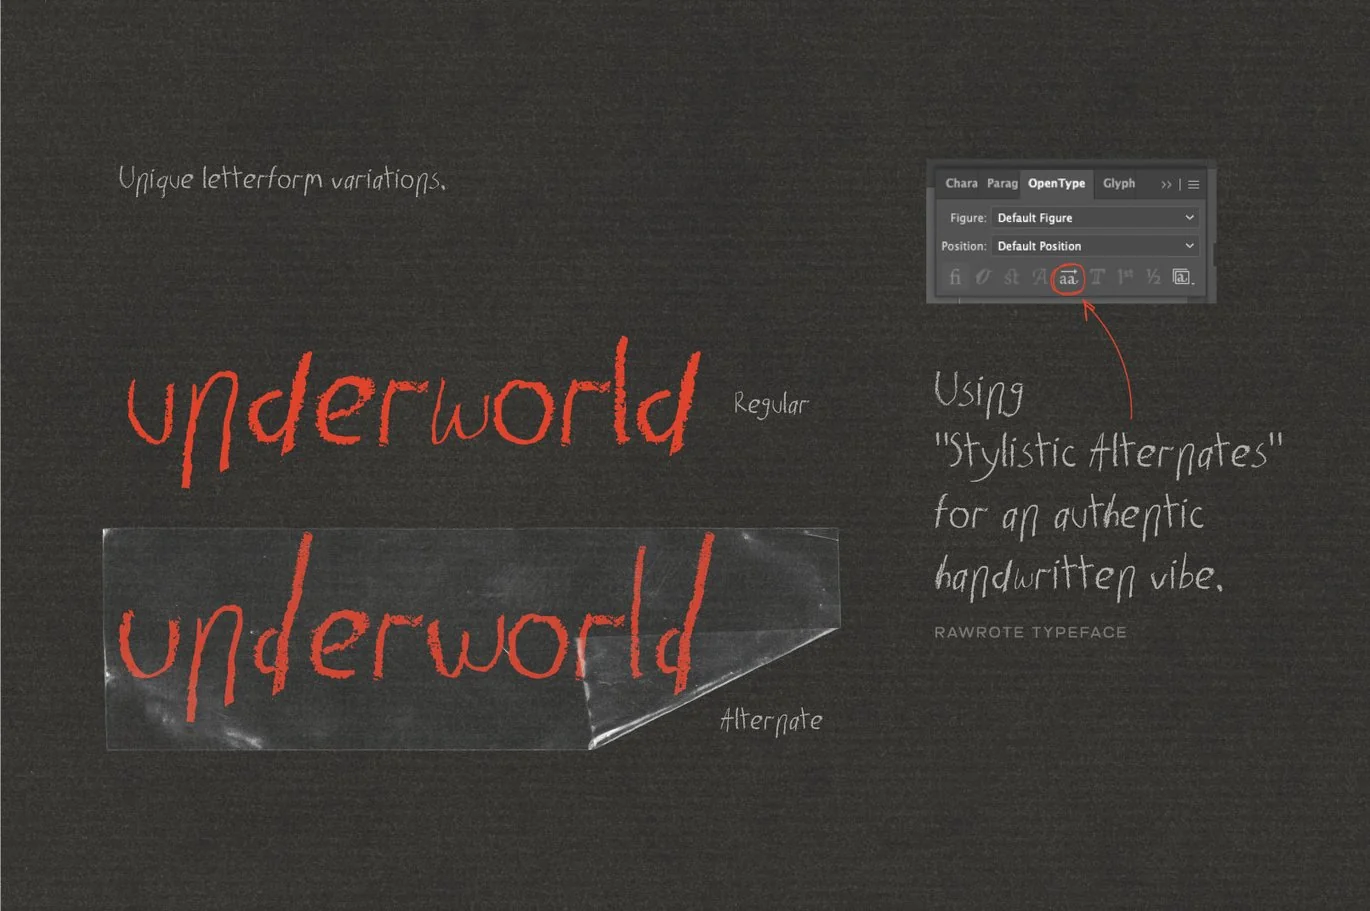 Unique letterform variations.
Chara Parag OpenType Glyph
Figure: Default Figure
Position: Default Position
fi O st A aa T 1st ½ a
underworld
Regular
underworld
Alternate
Using
"Stylistic Alternates"
for an authentic
handwritten vibe.
RAWROTE TYPEFACE